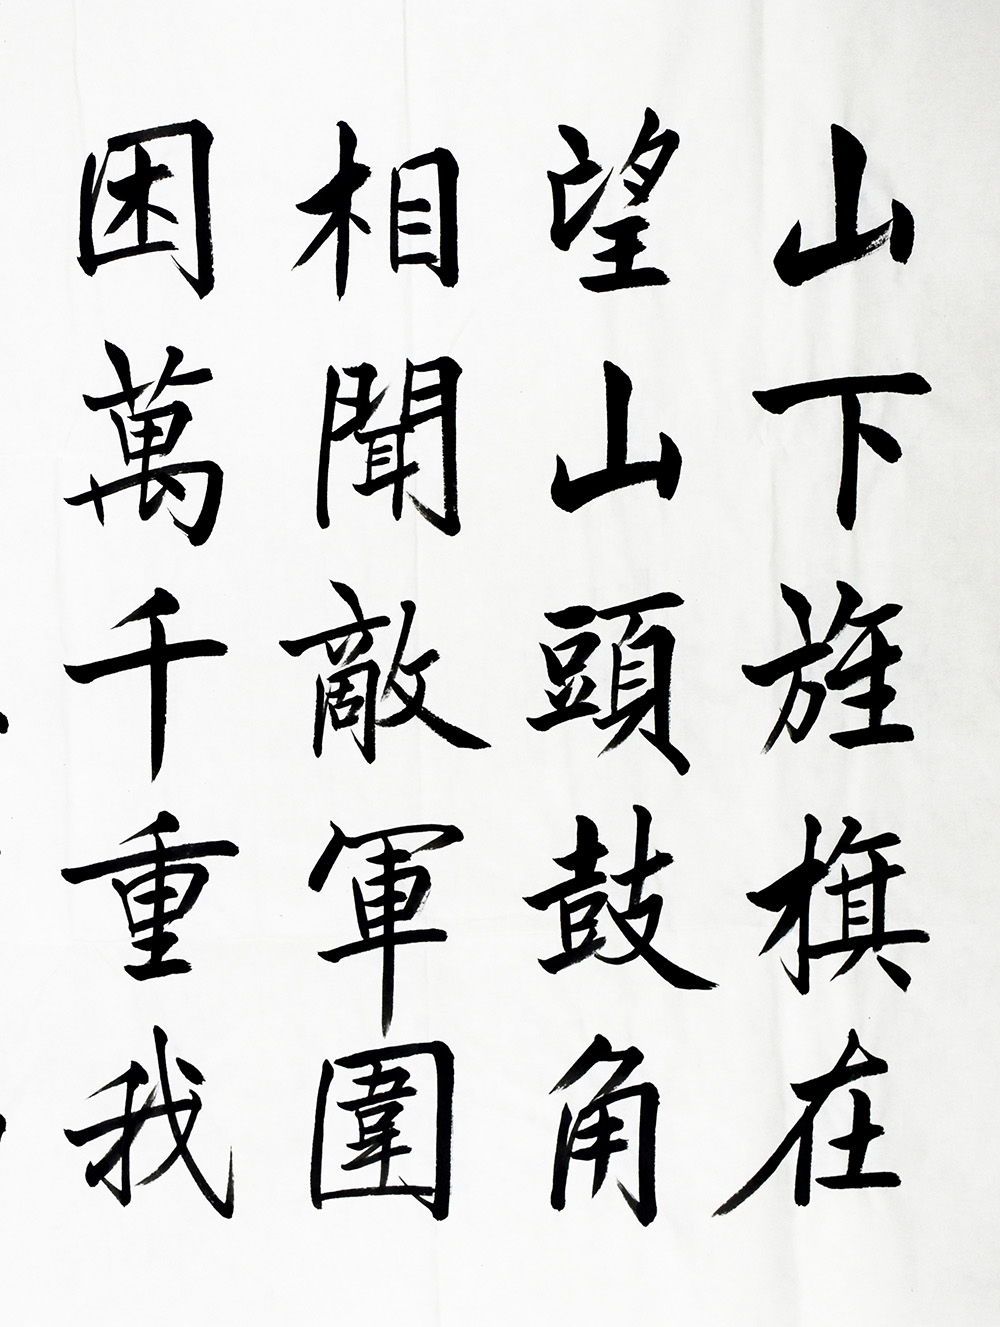 山下旌旗在
望山頭鼓角
相聞敵軍圍
困萬千重我